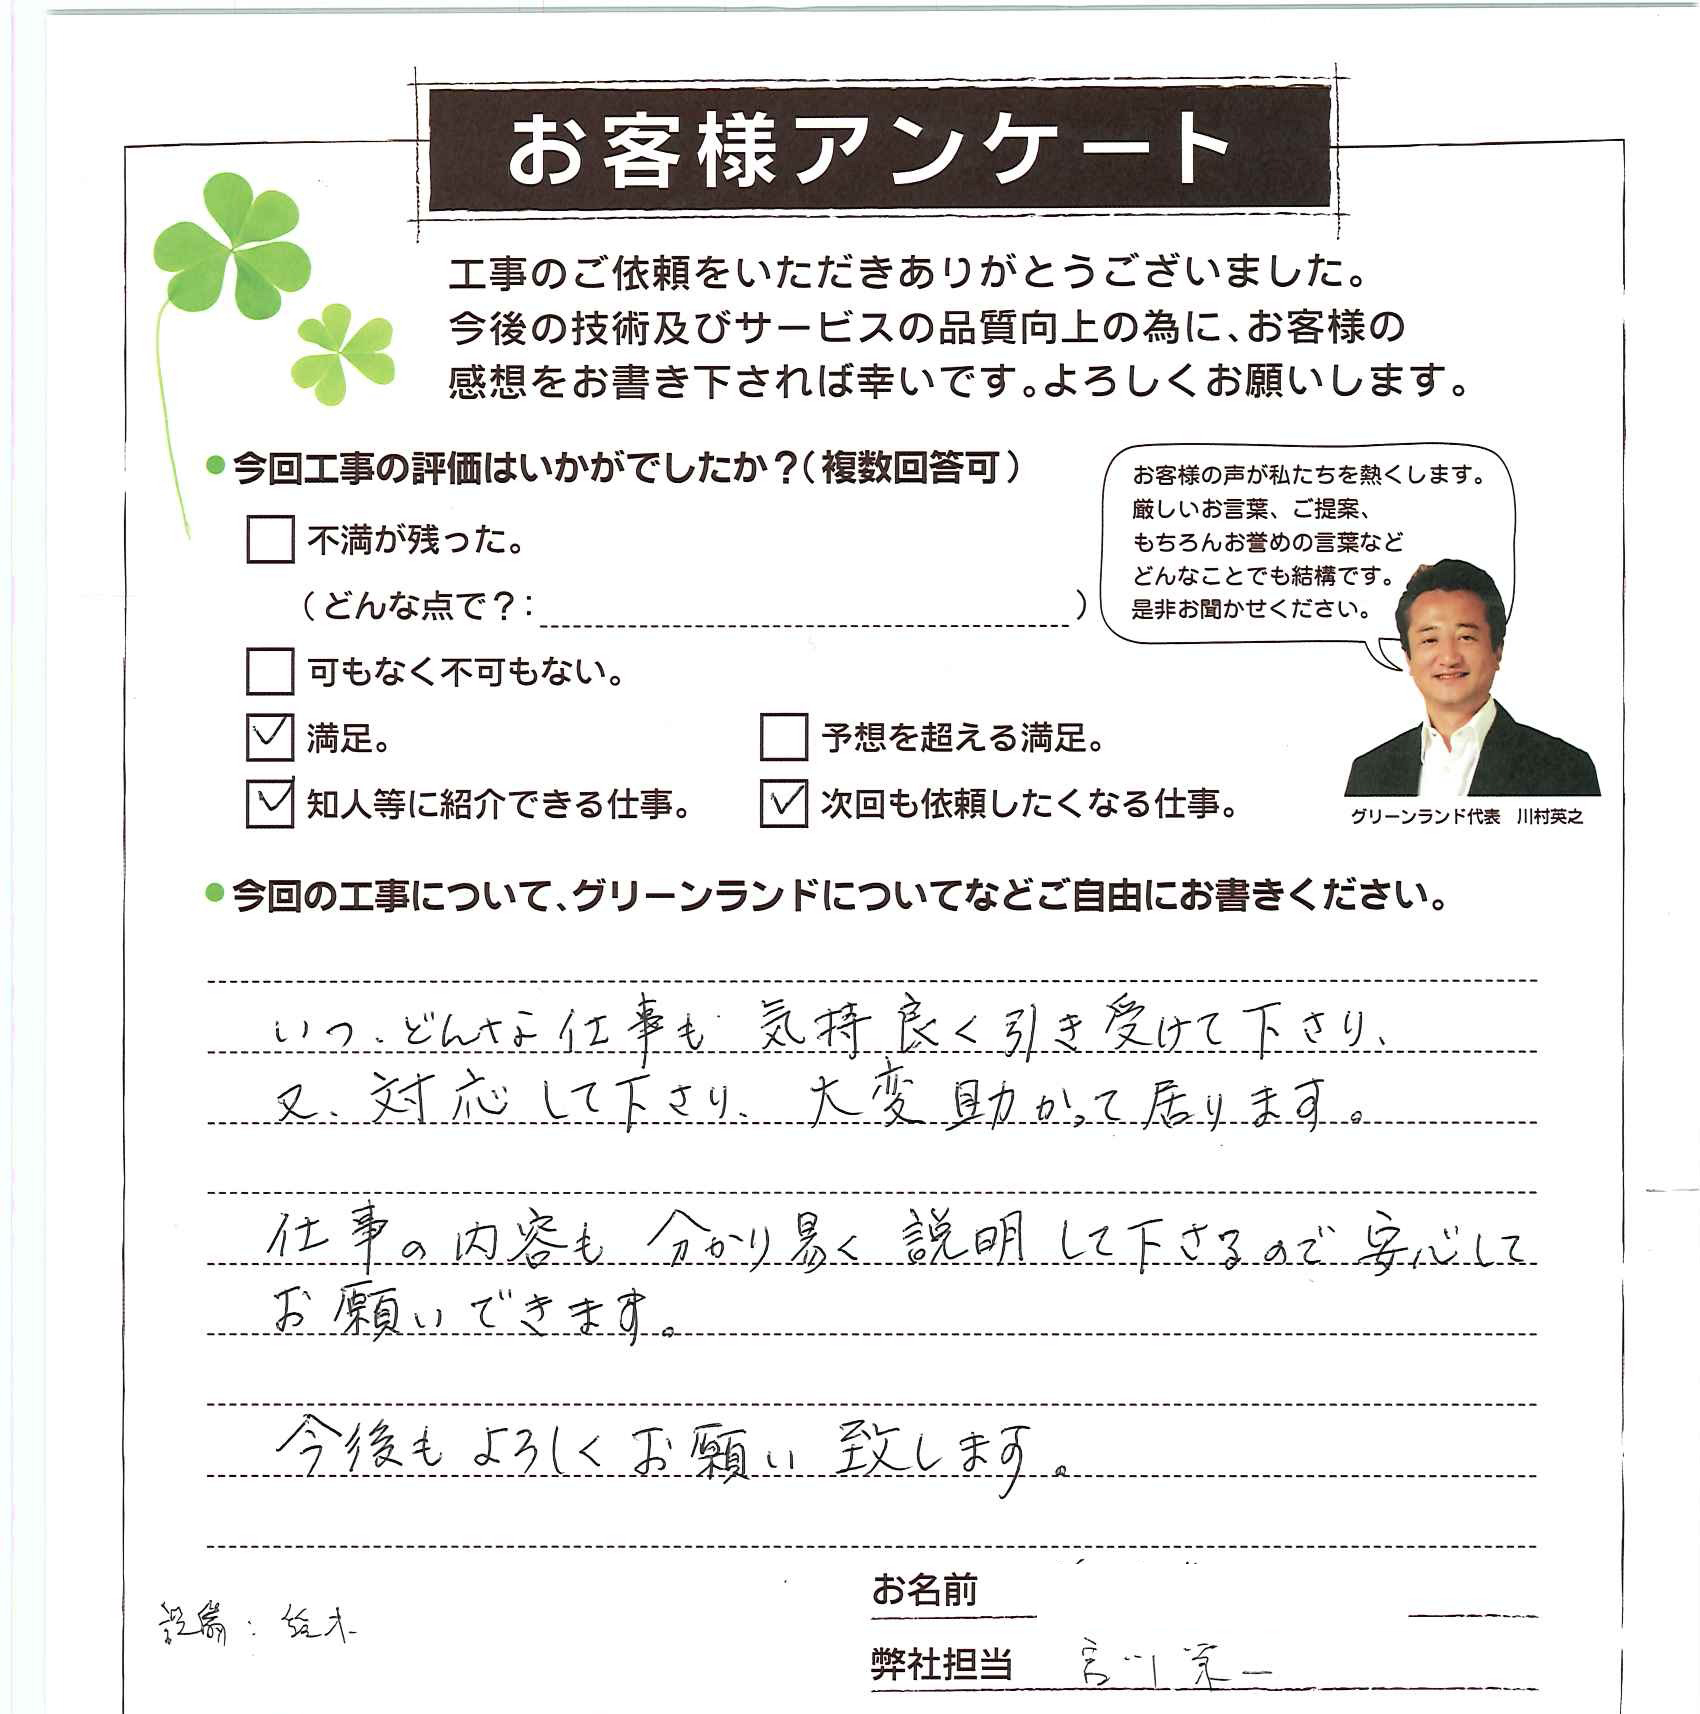 お客様アンケート
工事のご依頼をいただきありがとうございました。
今後の技術及びサービスの品質向上の為に、お客様の
感想をお書き下されば幸いです。よろしくお願いします。
●今回工事の評価はいかがでしたか?(複数回答可)
不満が残った。
(どんな点で?: )
可もなく不可もない。
満足。
予想を超える満足。
知人等に紹介できる仕事。
次回も依頼したくなる仕事。
お客様の声が私たちを熱くします。
厳しいお言葉、ご提案、
もちろんお誉めの言葉など
どんなことでも結構です。
是非お聞かせください。
グリーンランド代表 川村英之
●今回の工事について、グリーンランドについてなどご自由にお書きください。
いつ、どんな仕事も 気持良く引き受けて下さり、
又、対応して下さり、大変助かって居ります。
仕事の内容も 分かり易く 説明して下さるので 安心して
お願いできます。
今後もよろしくお願い致します。
お名前
弊社担当 宮川 栄一
設備:鈴木